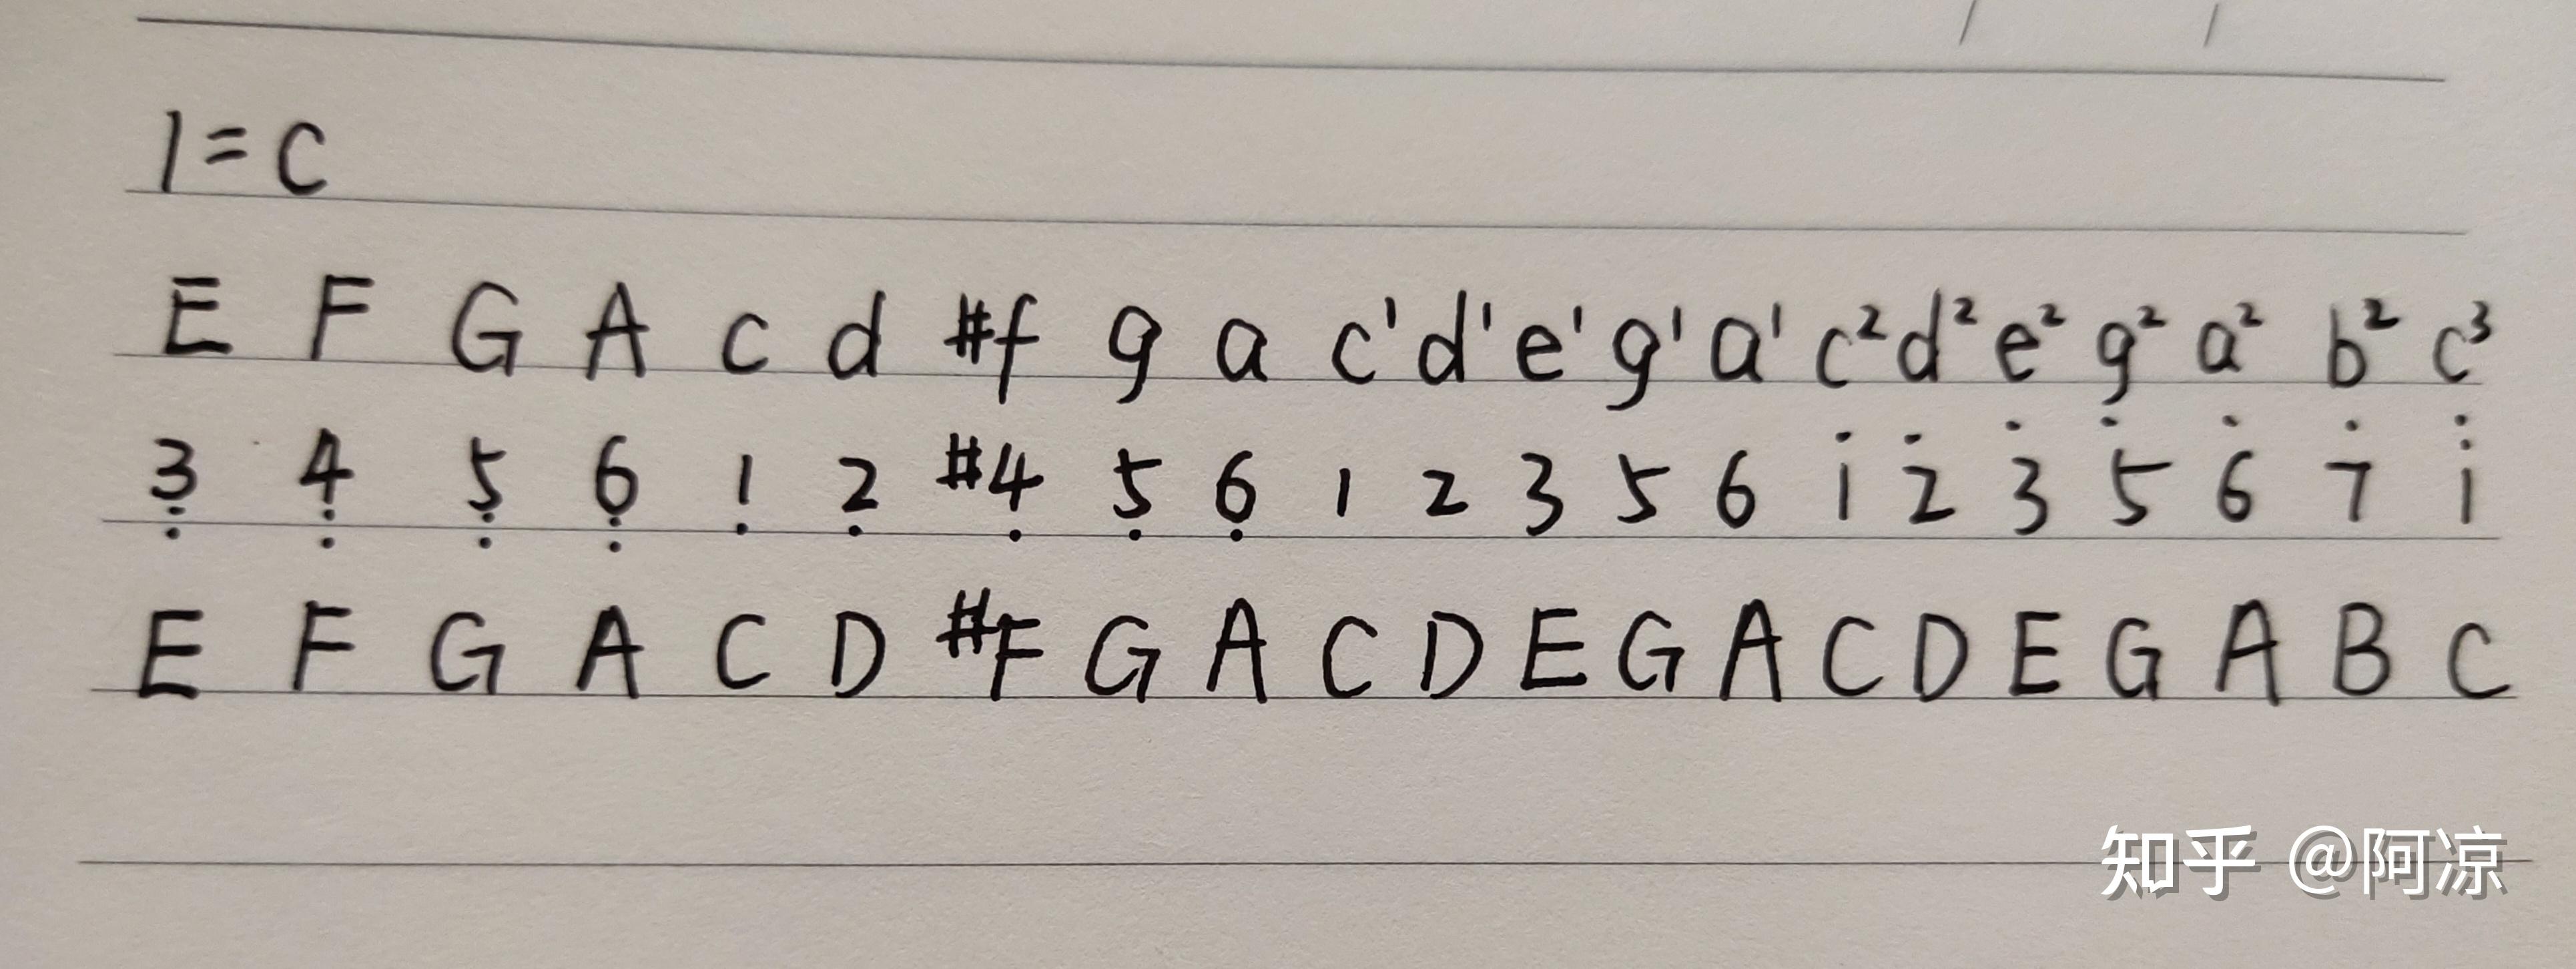 1=C
E F G A c d #f g a c¹ d¹ e¹ g¹ a¹ c² d² e² g² a² b² c³
3̤ 4̤ 5̤ 6̤ 1̣ 2̣ #4̣ 5̣ 6̣ 1 2 3 5 6 1̇ 2̇ 3̇ 5̇ 6̇ 7̇ 1̈
E F G A C D #F G A C D E G A C D E G A B C
知乎 @阿凉